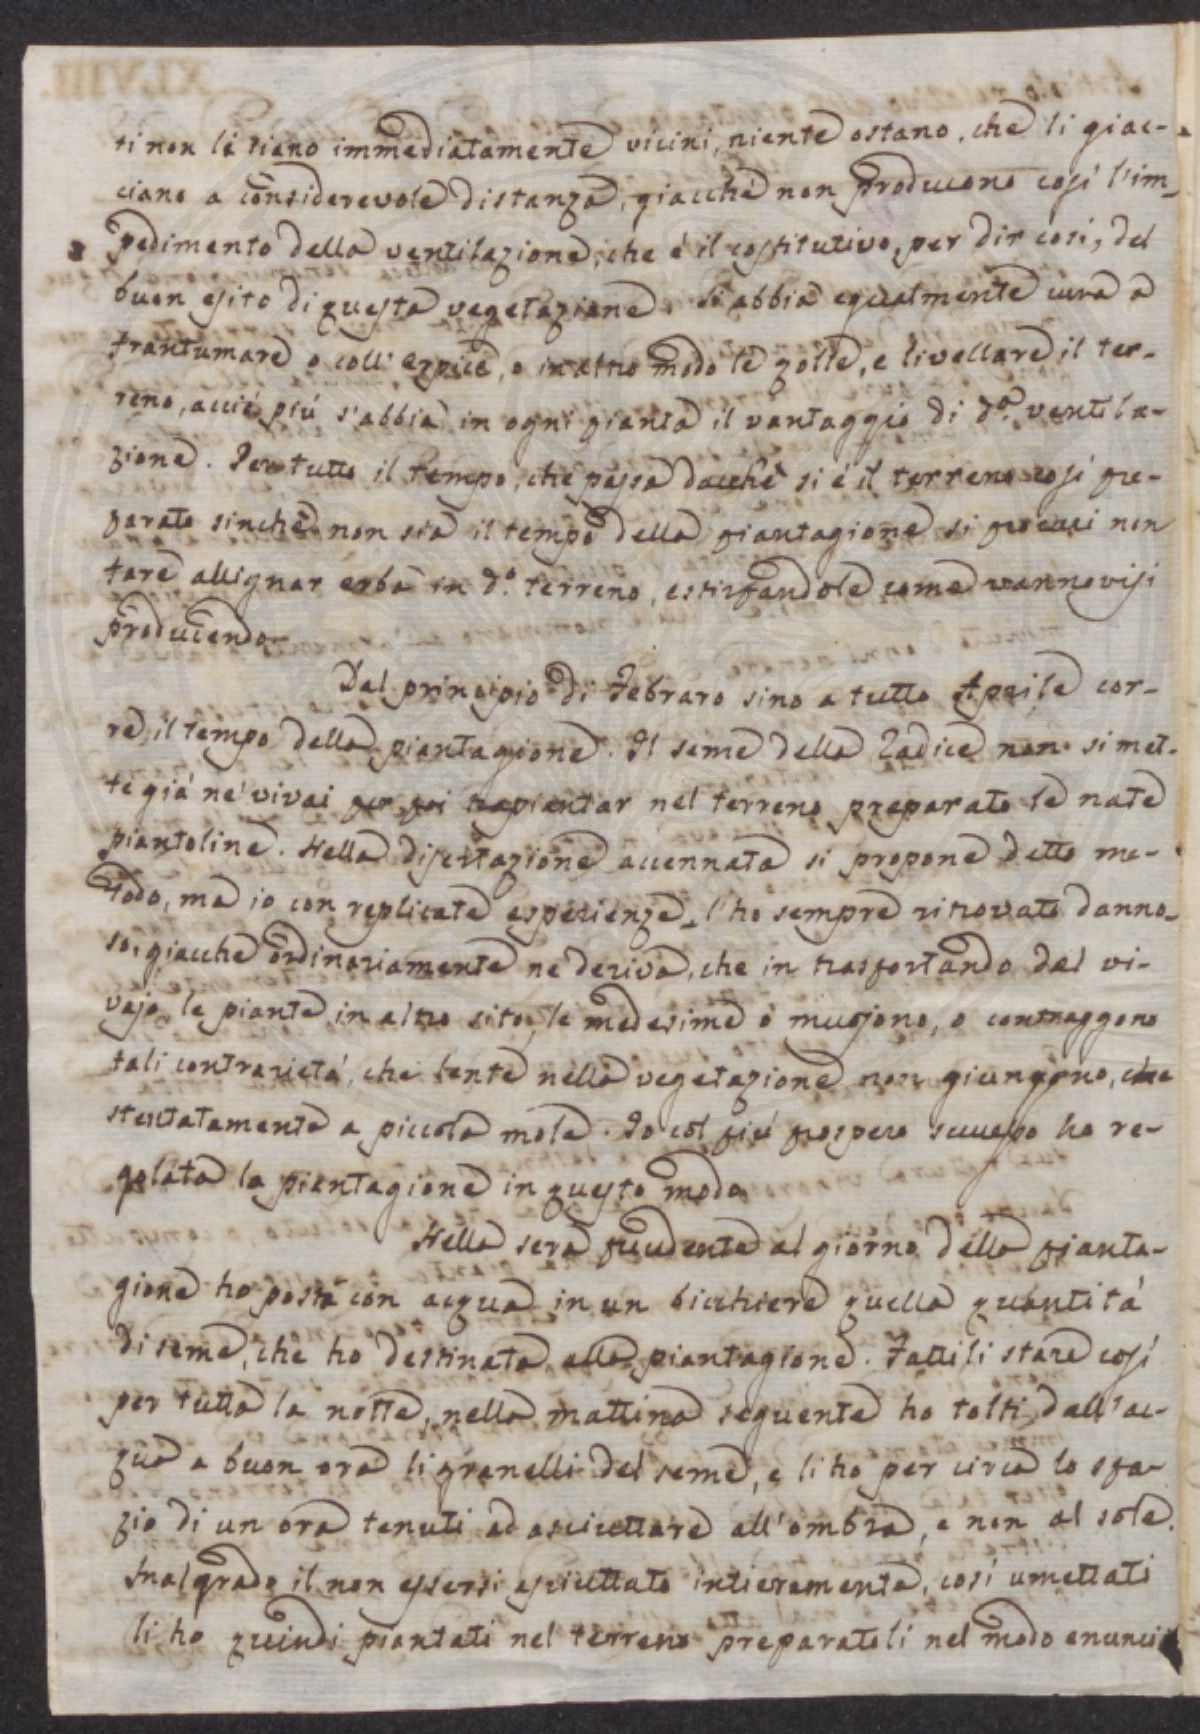 ti non là siano immediatamente vicini, niente ostano, che li giac-
ciano a considerevole distanza, giacchè non producono così l'im-
pedimento della ventilazione, che è il costitutivo, per dir così, del
buon esito di questa vegetazione. Si abbia egualmente cura a
frantumare o coll' erpice, o in altro modo le zolle, e livellare il ter-
reno, acciò più s'abbia in ogni pianta il vantaggio di d.ª ventila-
zione. Per tutto il tempo, che passa dacchè si è il terreno così pre-
parato sinchè non sia il tempo della piantagione si procuri non
fare allignar erba in d.º terreno, estirpandole come vannovisi
producendo.
Dal principio di Febraro sino a tutto Aprile cor-
re il tempo della piantagione. Il seme della Radice non si met-
te già ne' vivai per poi trapiantar nel terreno preparato le nate
piantoline. Nella disertazione accennata si propone detto me-
todo, ma io con replicate esperienze l'ho sempre ritrovato danno-
so, giacche ordinariamente ne deriva, che in trasportando dal vi-
vajo le piante in altro sito, le medesime o muojono, o contraggono
tali contrarietà, che lente nella vegetazione non giungono, che
stentatamente a piccola mole. Io col più prospero successo ho re-
golata la piantagione in questo modo
Nella sera precedente al giorno della pianta-
gione ho posta con acqua in un bicchiere quella quantità
di seme, che ho destinata alla piantagione. Fattili stare così
per tutta la notte, nella mattina seguente ho tolti dall'ac-
qua a buon ora li granelli del seme, e li ho per circa lo spa-
zio di un ora tenuti ad asciuttare all'ombra, e non al sole.
Malgrado il non essersi asciuttato intieramente, così umettati
li ho quindi piantati nel terreno preparatoli nel modo enunci